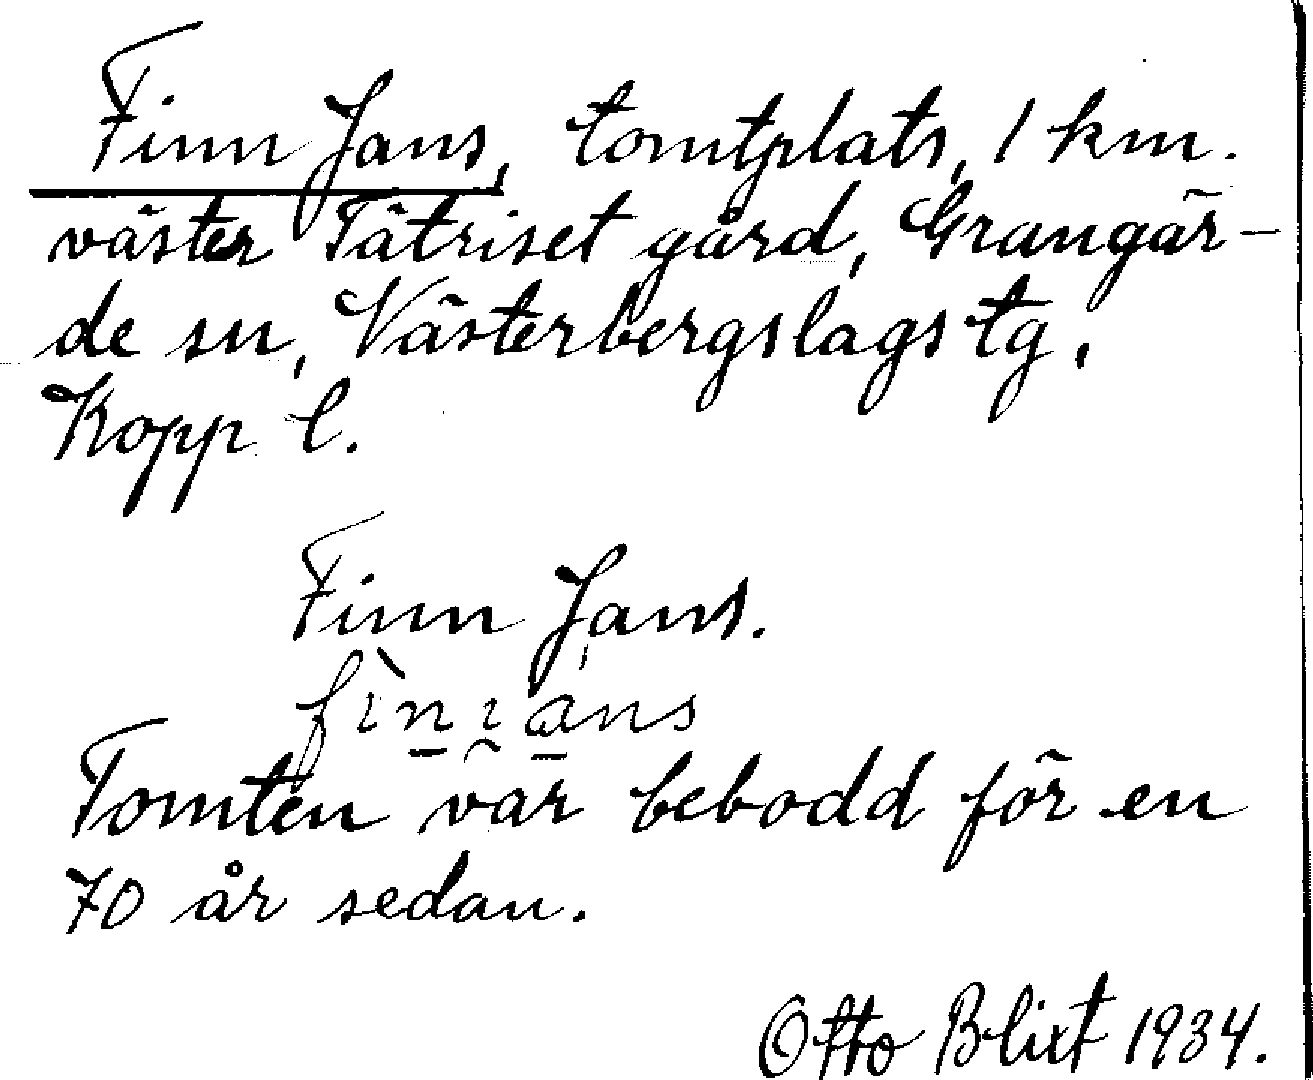 Finn Jans, tomtplats, 1 km.
väster Tätriset gård, Grangär-
de sn, Västerbergslags tg,
Kopp l.
Finn Jans.
fìn i̯ans
Tomten var bebodd för en
70 år sedan.
Otto Blixt 1934.